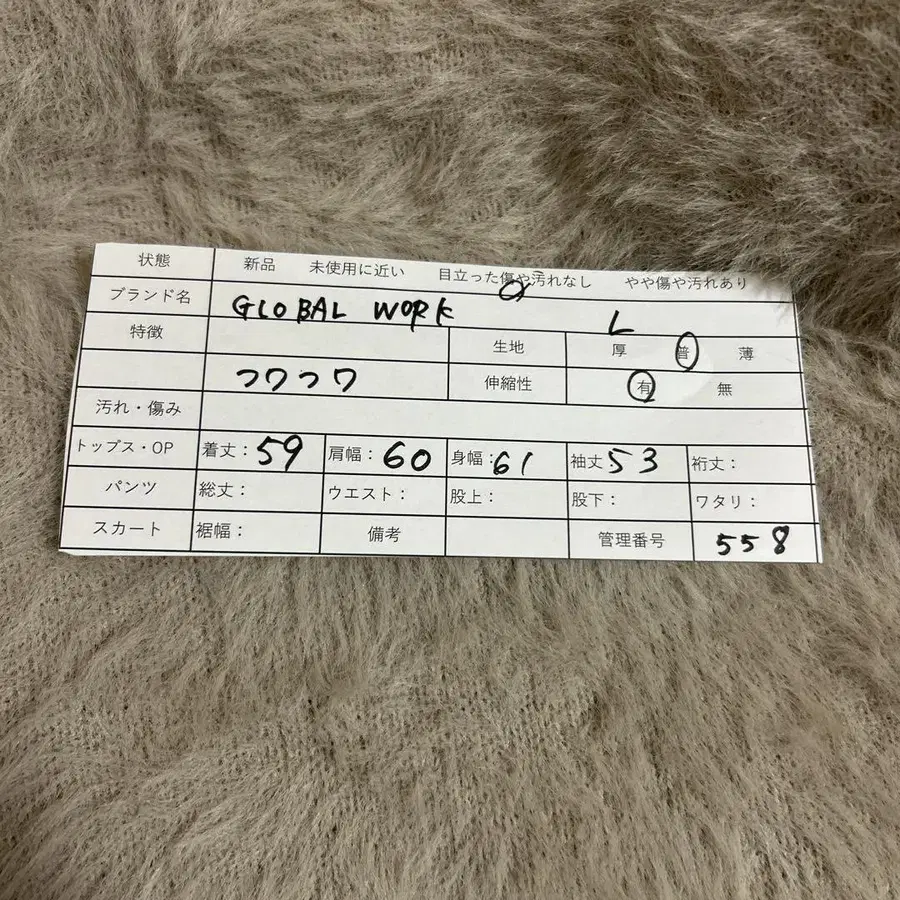 状態 新品 未使用に近い 目立った傷や汚れなし やや傷や汚れあり
ブランド名 GLOBAL WORK L
特徴 生地 厚 普 薄
フワフワ 伸縮性 有 無
汚れ・傷み
トップス・OP 着丈:59 肩幅:60 身幅:61 袖丈:53 裄丈:
パンツ 総丈: ウエスト: 股上: 股下: ワタリ:
スカート 裾幅: 備考 管理番号 558